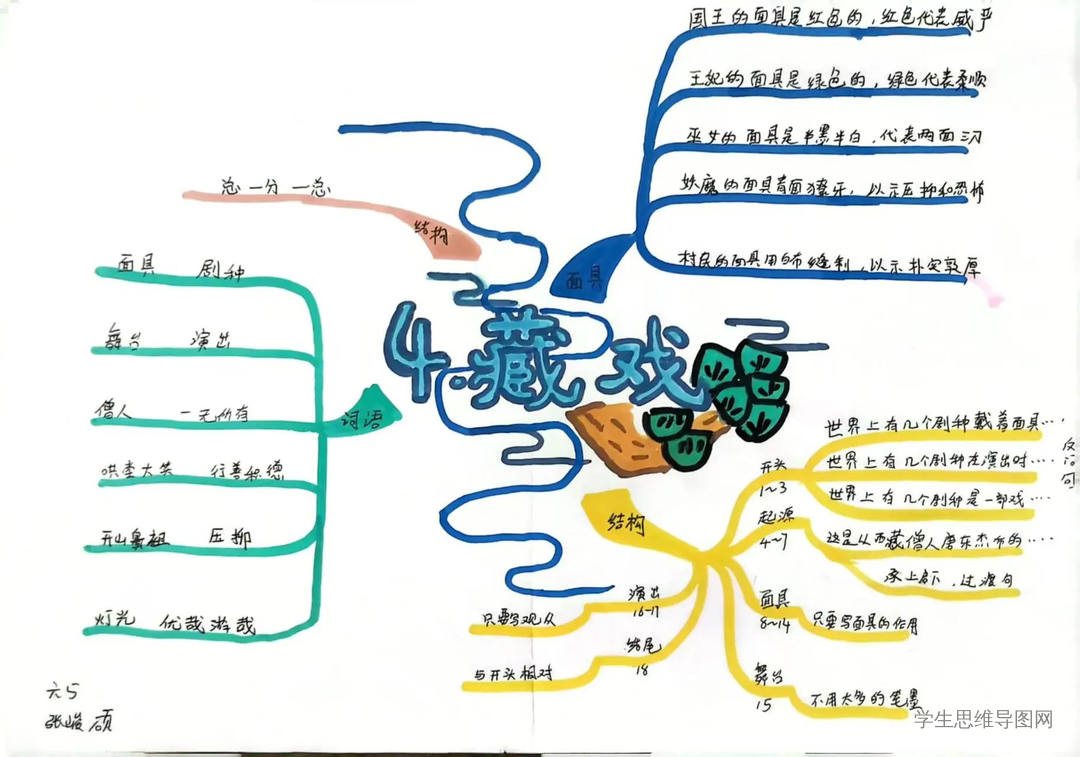 4.藏戏
面具
国王的面具是红色的，红色代表威严
王妃的面具是绿色的，绿色代表柔顺
巫女的面具是半黑半白，代表两面三刀
妖魔的面具青面獠牙，以示压抑和恐怖
村民的面具用白布缝制，以示朴实敦厚
结构
总一分一总
词语
面具 剧种
舞台 演出
僧人 一无所有
哄堂大笑 行善积德
开山鼻祖 压抑
灯光 优哉游哉
结构
开头
1~3
世界上有几个剧种戴着面具…
世界上有几个剧种在演出时….
世界上有几个剧种是一部戏….
反问句
起源
4~7
这是从西藏僧人唐东杰布的….
承上启下，过渡句
面具
8~14
只要写面具的作用
舞台
15
不用太多的笔墨
演出
16-17
只要写观众
结尾
18
与开头相对
六5
张峻硕
学生思维导图网